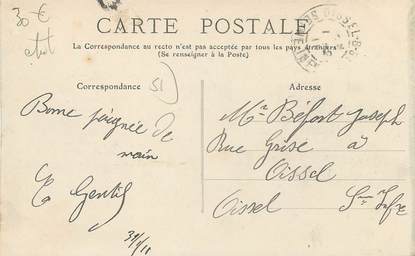 30 €
CARTE POSTALE
La Correspondance au recto n'est pas acceptée par tous les pays étrangers
(Se renseigner à la Poste)
Correspondance
51
Adresse
Bonne poignée de
main
E Gentil
Mr Béfort Joseph
Rue Grise à
Oissel
Oissel Sne Infre